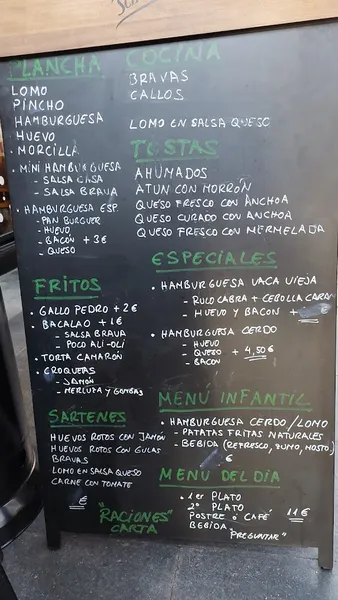 PLANCHA
LOMO
PINCHO
HAMBURGUESA
HUEVO
• MORCILLA
• MINI HAMBURGUESA
- SALSA CASA
- SALSA BRAVA
• HAMBURGUESA ESP.
- PAN BURGUER
- HUEVO
- BACON + 3€
- QUESO
FRITOS
• GALLO PEDRO + 2€
• BACALAO + 1€
- SALSA BRAVA
- POCO ALI-OLI
• TORTA CAMARÓN
• CROQUETAS
- JAMÓN
- MERLUZA Y GAMBAS
SARTENES
HUEVOS ROTOS CON JAMÓN
HUEVOS ROTOS CON GULAS
BRAVAS
LOMO EN SALSA QUESO
CARNE CON TOMATE
€
"RACIONES"
CARTA
COCINA
BRAVAS
CALLOS
LOMO EN SALSA QUESO
TOSTAS
AHUMADOS
ATUN CON MORRÓN
QUESO FRESCO CON ANCHOA
QUESO CURADO CON ANCHOA
QUESO FRESCO CON MERMELADA
ESPECIALES
• HAMBURGUESA VACA VIEJA
- RULO CABRA + CEBOLLA
- HUEVO Y BACON +
• HAMBURGUESA CERDO
- HUEVO
- QUESO + 4,50€
- BACON
MENU INFANTIL
• HAMBURGUESA CERDO/LOMO
- PATATAS FRITAS NATURALES
- BEBIDA (REFRESCO, ZUMO, MOSTO)
€
MENU DEL DIA
• 1er PLATO
2º PLATO
POSTRE ó CAFÉ 11€
BEBIDA
"PREGUNTAR"